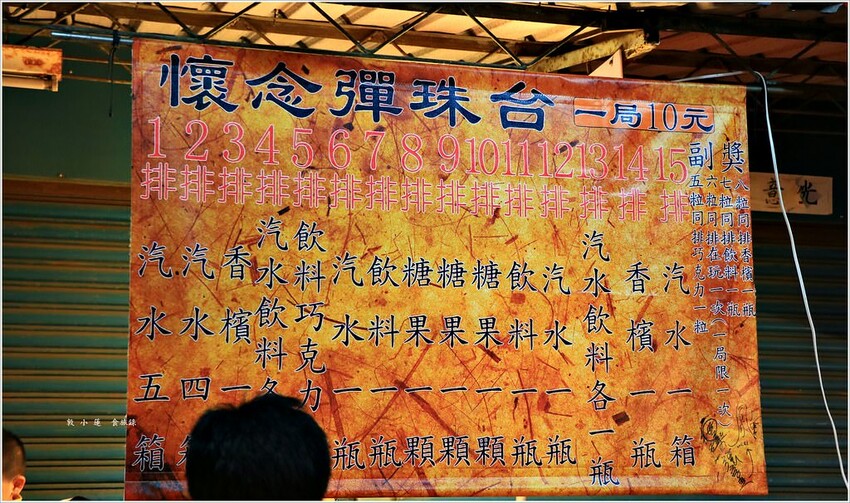 懷念彈珠台 一局10元
1 2 3 4 5 6 7 8 9 10 11 12 13 14 15
排 排 排 排 排 排 排 排 排 排 排 排 排 排 排
汽水五箱
汽水四
香檳一
汽水飲料各
飲料巧克力
汽水一瓶
飲料一瓶
糖果一顆
糖果一顆
糖果一顆
飲料一瓶
汽水一瓶
汽水飲料各一瓶
香檳一瓶
汽水一箱
副獎
八粒同排香檳一瓶
七粒同排飲料一瓶
六粒同排在玩一次(一局限一次)
五粒同排巧克力一粒
敦小蓮 食旅錄